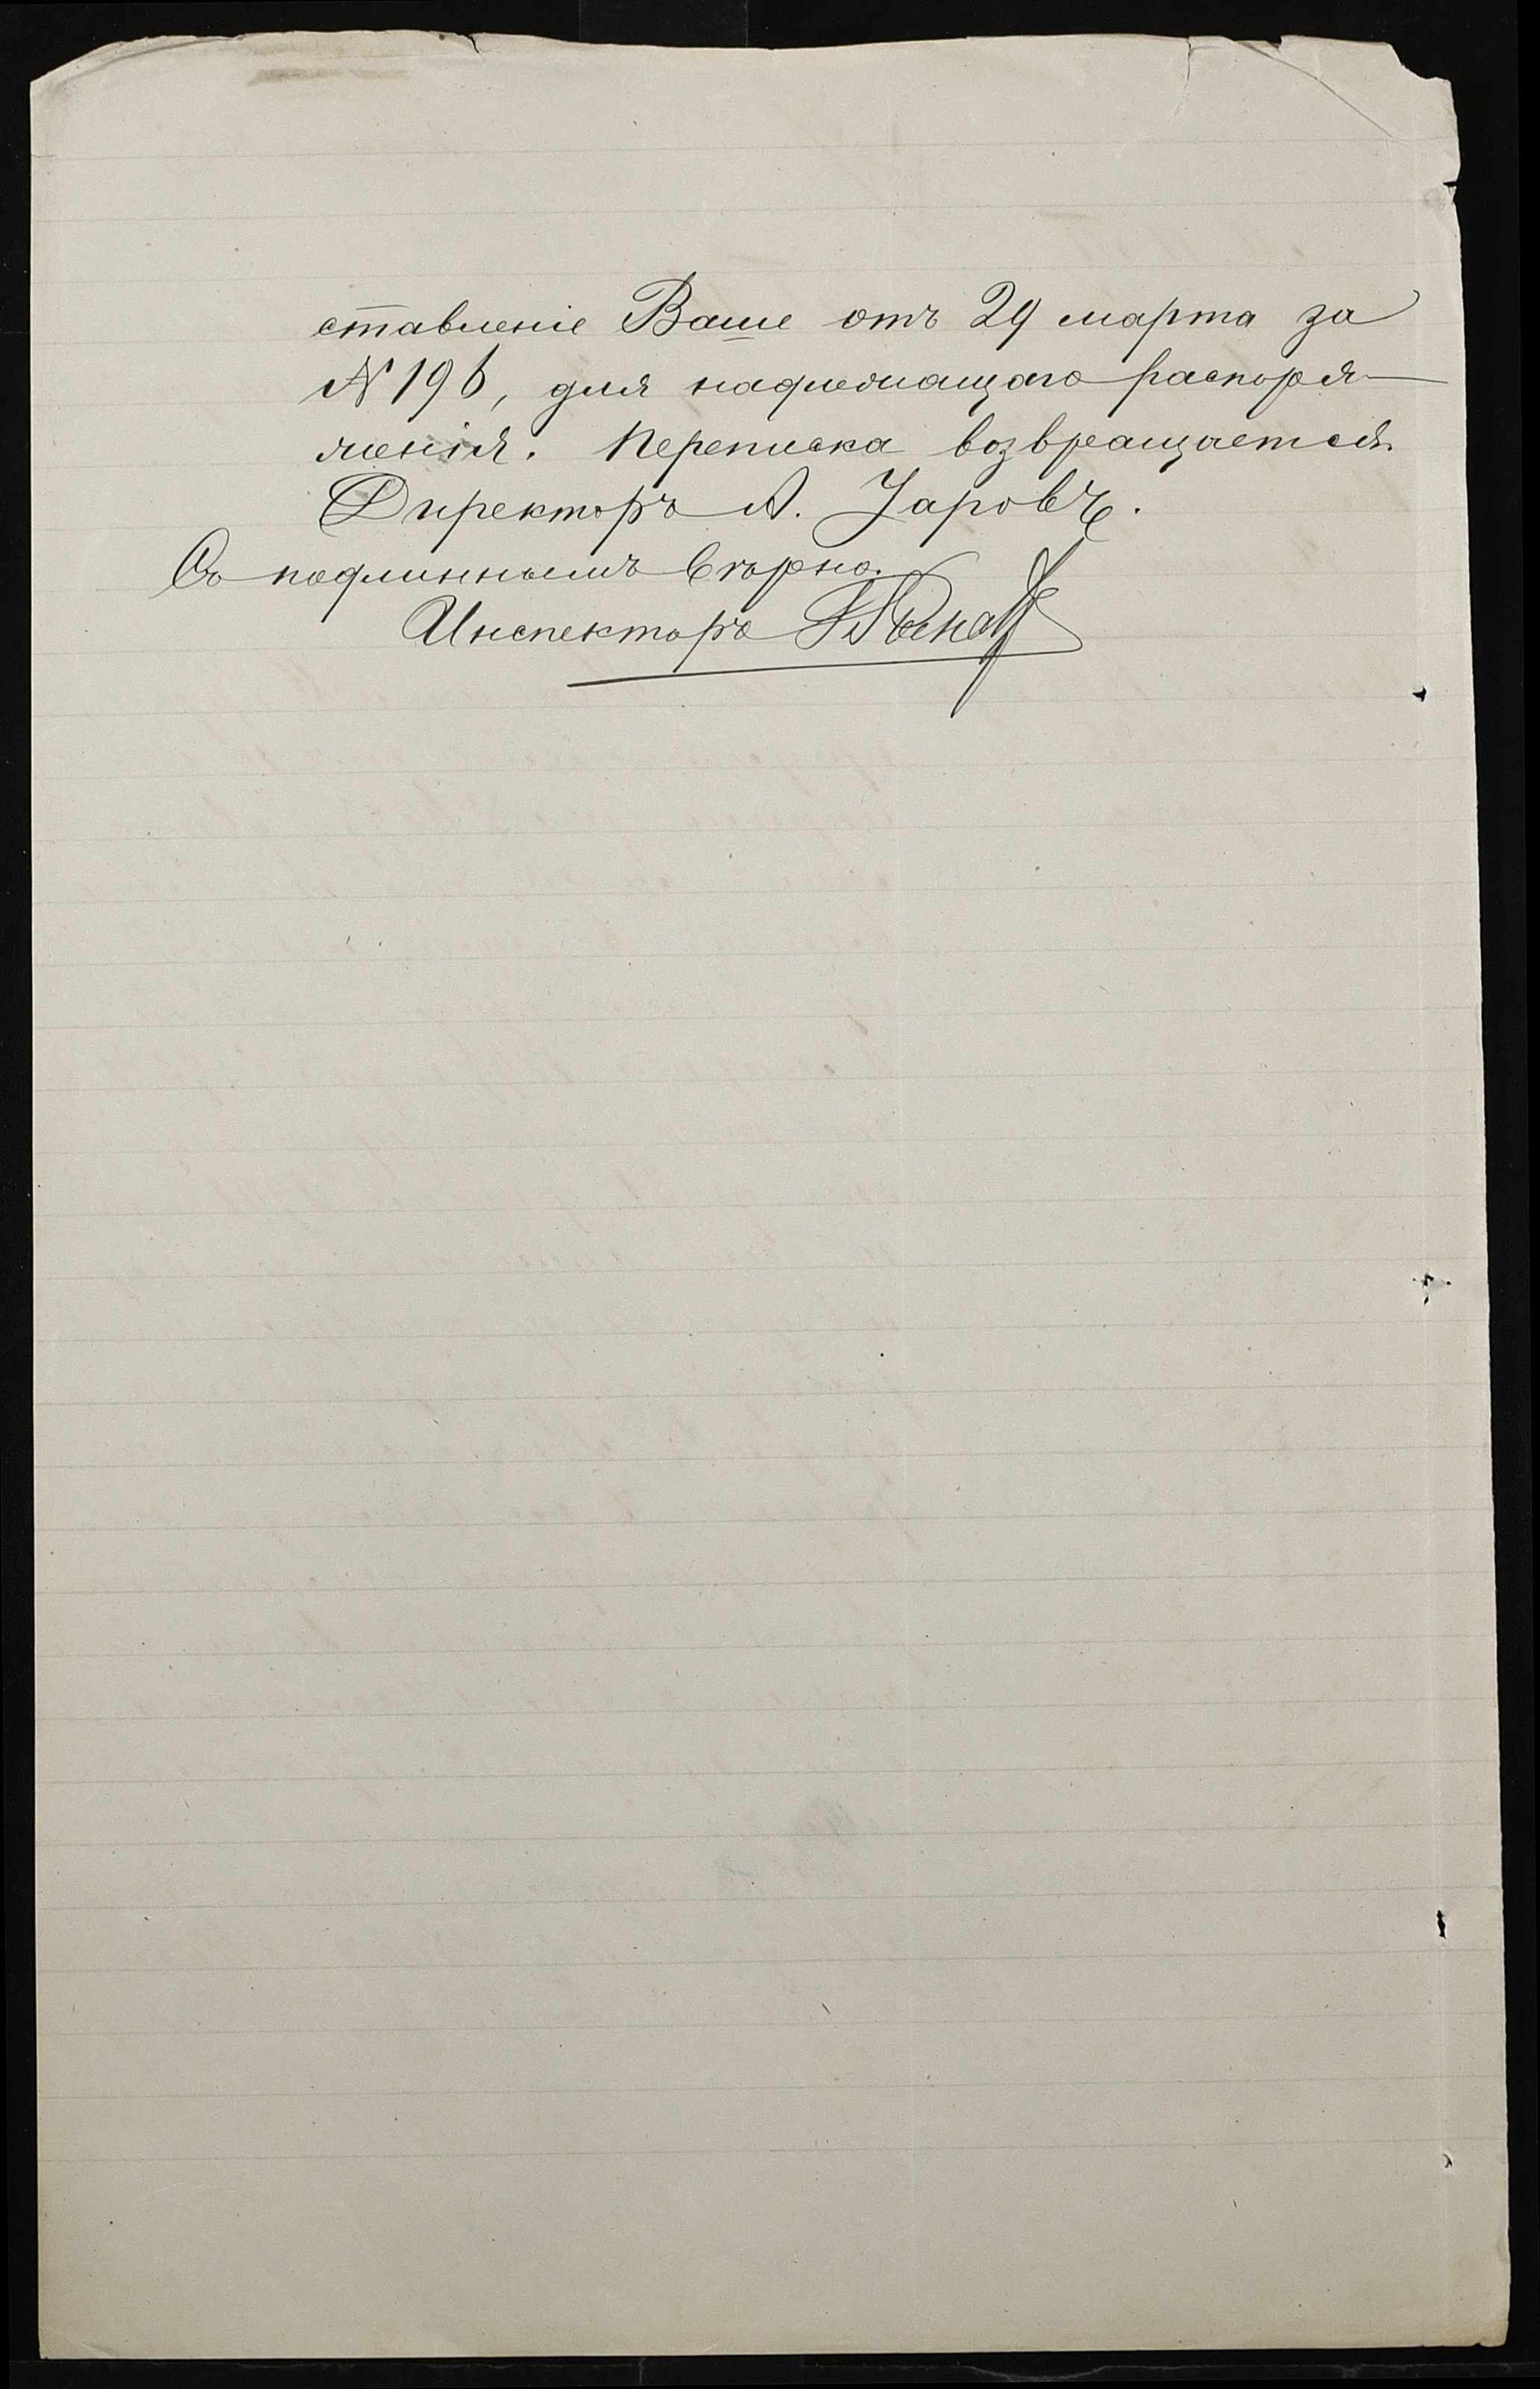 ставленіе Ваше отъ 29 марта за
№ 196, для надлежащаго распоря-
женія. Переписка возвращается.
Директоръ А. Жаровъ.
Съ подлиннымъ вѣрно.
Инспекторъ